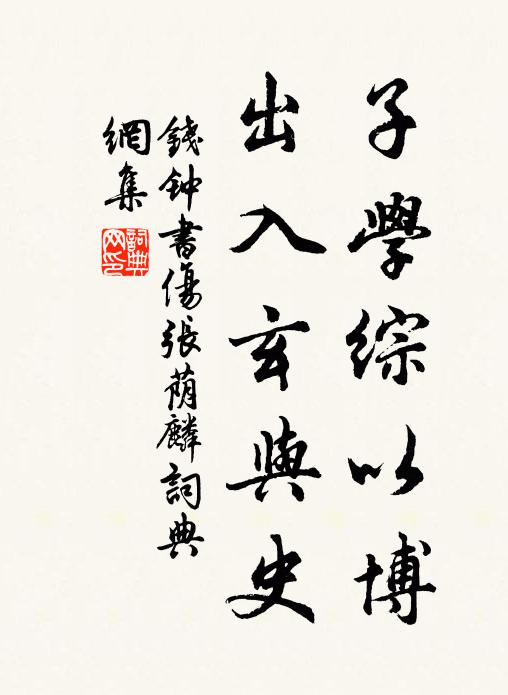 子學綜以博
出入玄與史
錢钟書傷張荫麟詞典
網集
詞典
网印